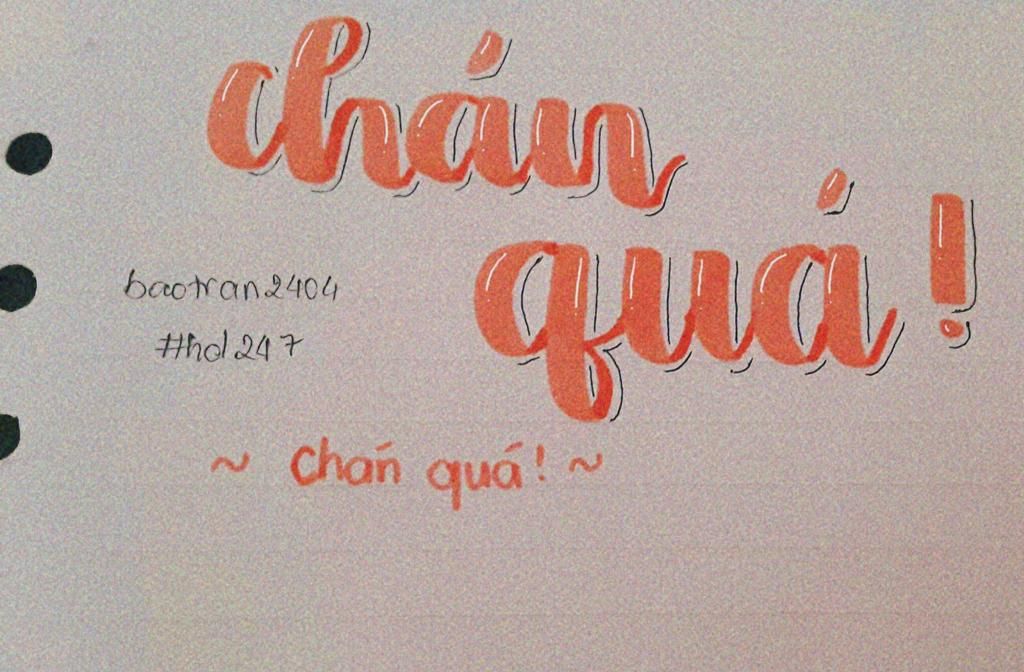 chán
quá!
baotran2404
#hd247
~ chán quá! ~